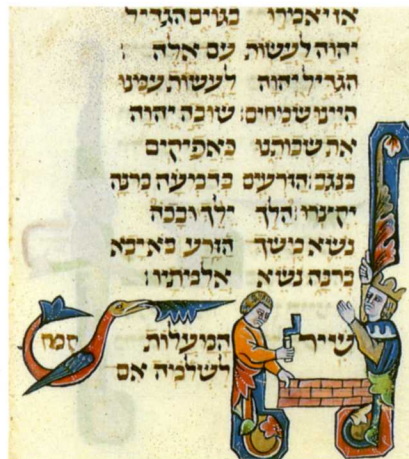 אז יאמרו בגוים הגדיל
יהוה לעשות עם אלה
הגדיל יהוה לעשות עמנו
היינו שמחים: שובה יהוה
את שבותנו כאפיקים
בנגב: הזרעים בדמעה ברנה
יקצרו: הלך ילך ובכה
נשא משך הזרע בא יבא
ברנה נשא אלמתיו:
שיר המעלות
לשלמה אם